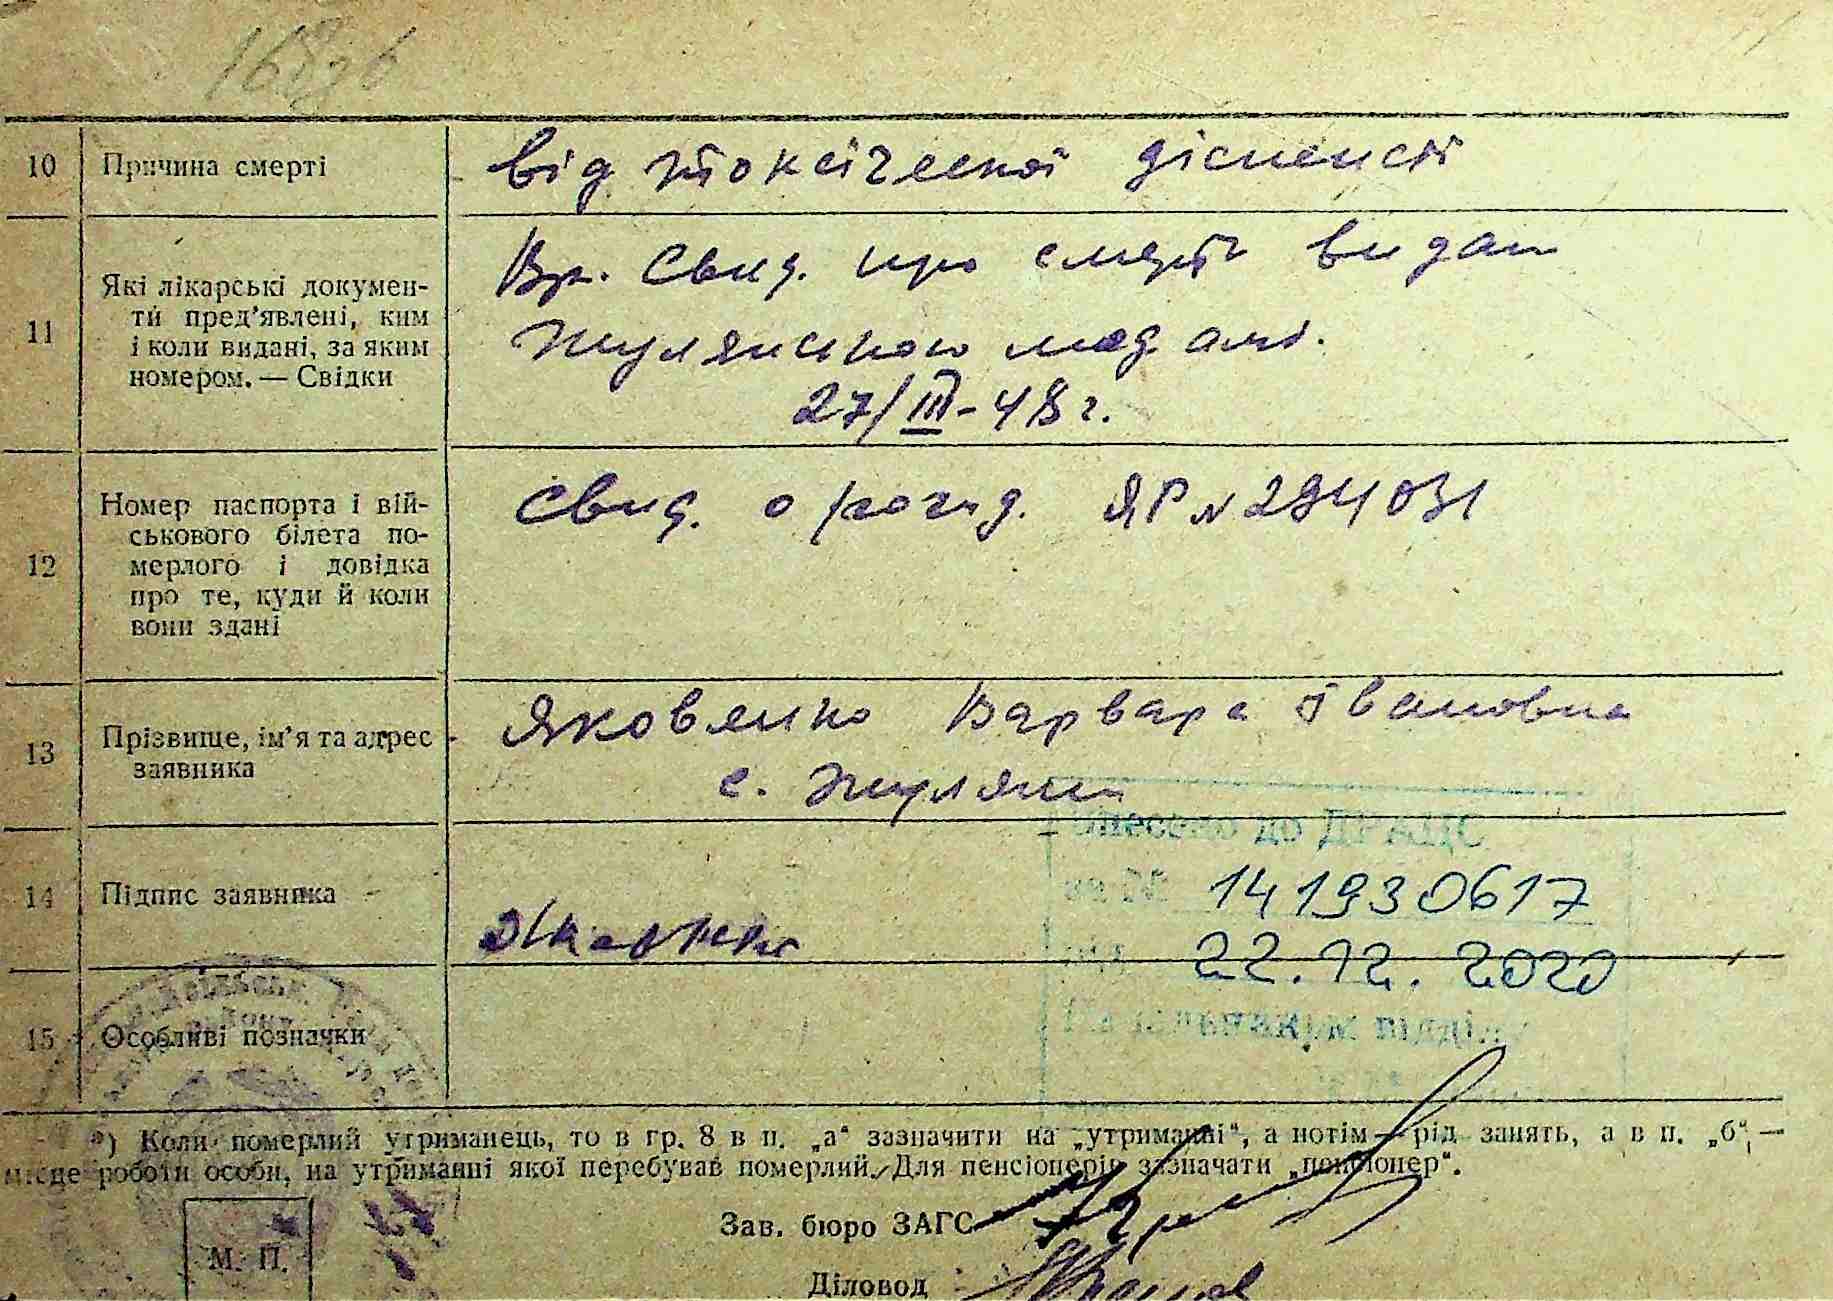 168зв
10 Причина смерті від токсічеської діспепсії
11 Які лікарські докумен-
ти пред'явлені, ким
і коли видані, за яким
номером. — Свідки
Вр. Свид. про смерть видан
Жулянською мед амб.
27/III-48 г.
12 Номер паспорта і вій-
ськового білета по-
мерлого і довідка
про те, куди й коли
вони здані
Свид. о рожд. ЯР №294031
13 Прізвище, ім'я та адрес
заявника
Яковенко Варвара Івановна
с. Жуляни
Внесено до ДРАЦС
за № 141930617
14 Підпис заявника
від 22.12.2020
15 Особливі позначки
Начальник відділу
*) Коли померлий утриманець, то в гр. 8 в п. „а“ зазначити на „утриманні“, а потім — рід занять, а в п. „б“, —
місце роботи особи, на утриманні якої перебував померлий. Для пенсіонерів зазначати „пенсіонер“.
Зав. бюро ЗАГС
М. П.
Діловод